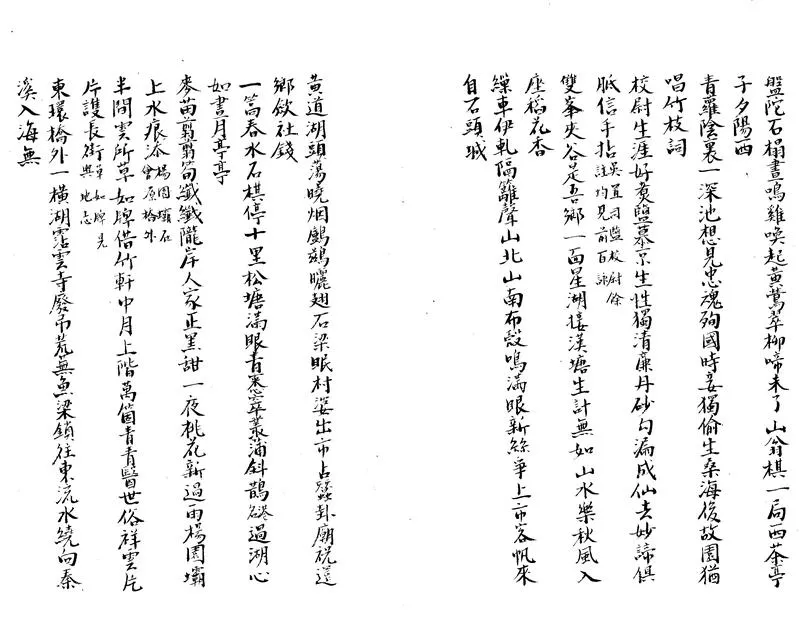 盤陀石榻晝鳴雞喚起黃鶯翠柳啼未了山翁棋一局西茶亭
子夕陽西
青蘿陰裏一深池想見忠魂殉國時妾獨偷生桑海後故園猶
唱竹枝詞
校尉生涯好煑鹽慕京生性獨清廉丹砂勾漏成仙去妙諦俱
胝信手拈吳宜司監校尉餘
註均見前百詠
雙峯夾谷是吾鄉一面星湖接漢塘生計無如山水樂秋風入
座稻花香
繅車伊軋隔籬聲山北山南布穀鳴滿眼新絲爭上市客帆來
自石頭城
黃道湖頭蕩曉烟鸕鷀曬翅石梁眠村婆出市占蠶卦廟祝還
鄉斂社錢
一篙春水石棋停十里松塘滿眼青悉率叢蒲斜鵲過湖心
如晝月亭亭
麥苗翦翦筍纖纖隴岸人家正黑甜一夜桃花新過雨楊園壩
上水痕添楊園壩石
會原橋外
半間雲所草如牌借竹軒中月上階萬箇青青醫世俗祥雲片
片護長街草如牌見
輿地志
東環橋外一橫湖霑雲寺廢吊荒蕪魚梁鎖往東流水繞向秦
溪入海無